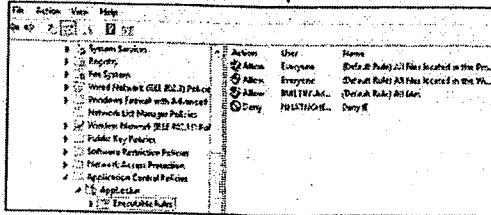 File Action View Help
System Services
Registry
File System
Wired Network (IEEE 802.3) Policie
Windows Firewall with Advanced
Network List Manager Policies
Wireless Network (IEEE 802.11) Pol
Public Key Policies
Software Restriction Policies
Network Access Protection
Application Control Policies
AppLocker
Executable Rules
Action User Name
Allow Everyone (Default Rule) All files located in the Pro...
Allow Everyone (Default Rule) All files located in the Wi...
Allow BUILTIN\Ad... (Default Rule) All files
Deny Deny